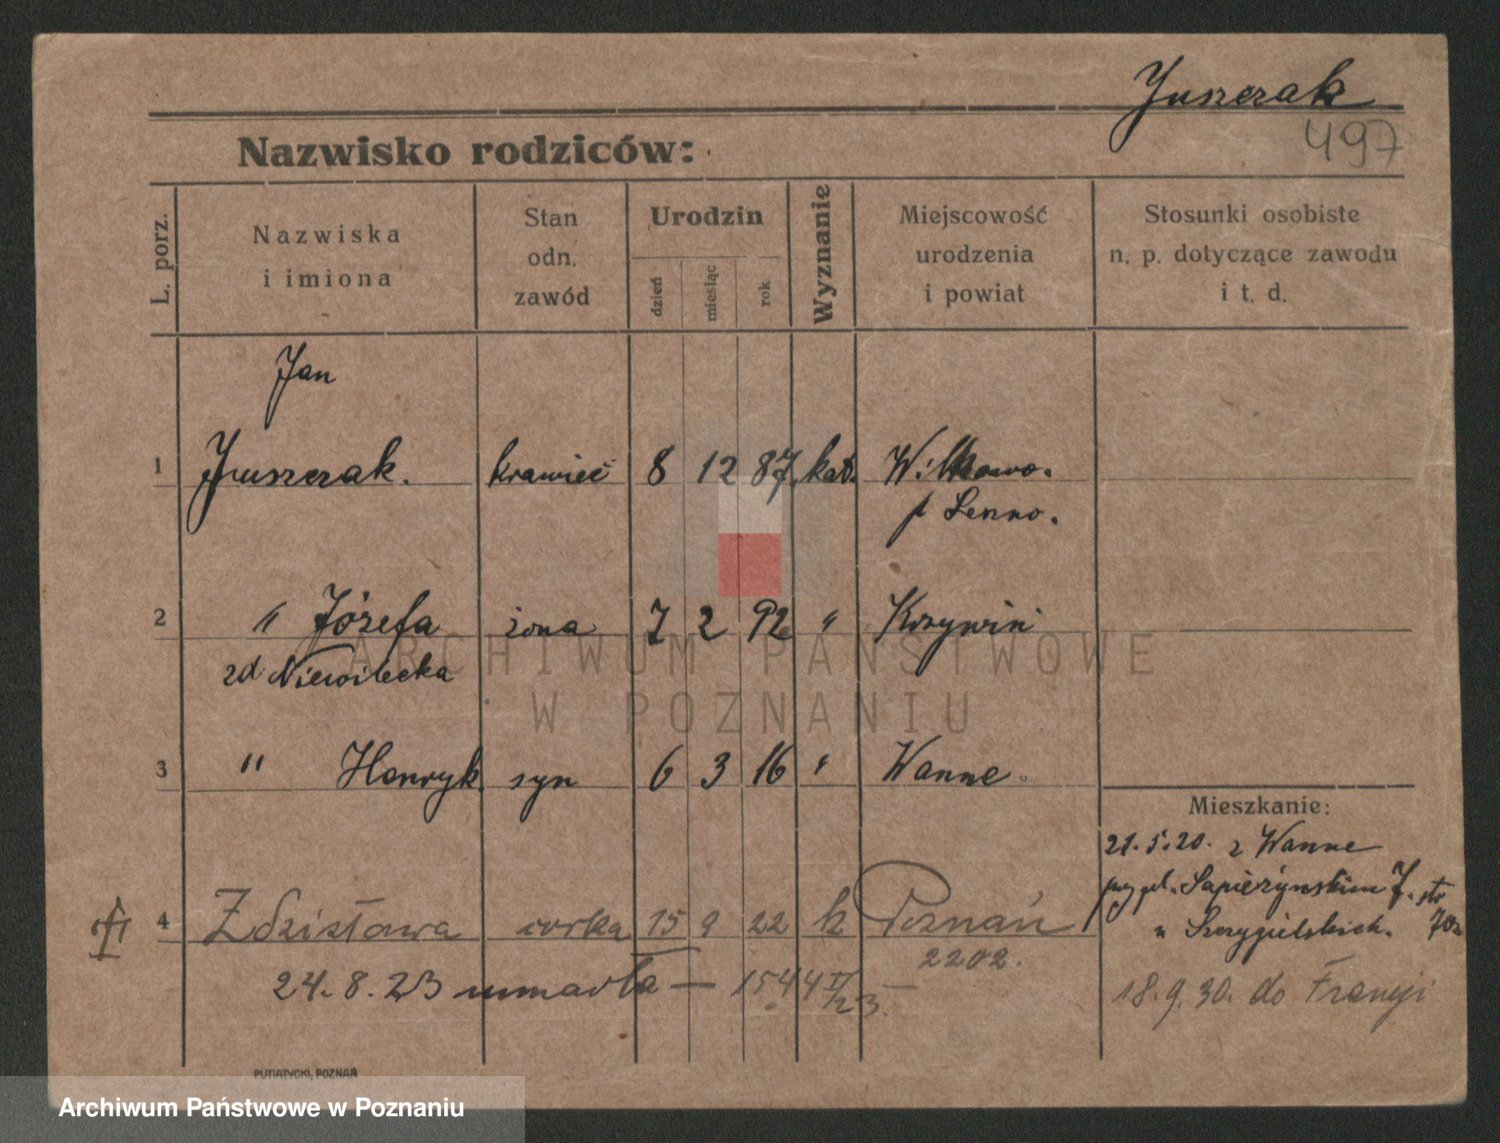 Juszczak
497
Nazwisko rodziców:
L. porz.
Nazwiska
i imiona
Stan
odn.
zawód
Urodzin
dzień
miesiąc
rok
Wyznanie
Miejscowość
urodzenia
i powiat
Stosunki osobiste
n. p. dotyczące zawodu
i t. d.
Jan
1 Juszczak. krawiec 8 12 87 kat. Wilkowo.
p Leszno.
2 " Józefa żona 7 2 92 " Krzywiń
zd Niewitecka
3 " Henryk syn 6 3 16 " Wanne
Mieszkanie:
21.5.20. z Wanne
pl. Sapieżyńskim 7.
u Szczygielskich.
4 Zdzisława córka 15 9 22 k Poznań
2202.
24.8.23 umarła — 1544
18.9.30. do Francji
PUTIATYCKI, POZNAŃ
ARCHIWUM PAŃSTWOWE
W POZNANIU
Archiwum Państwowe w Poznaniu